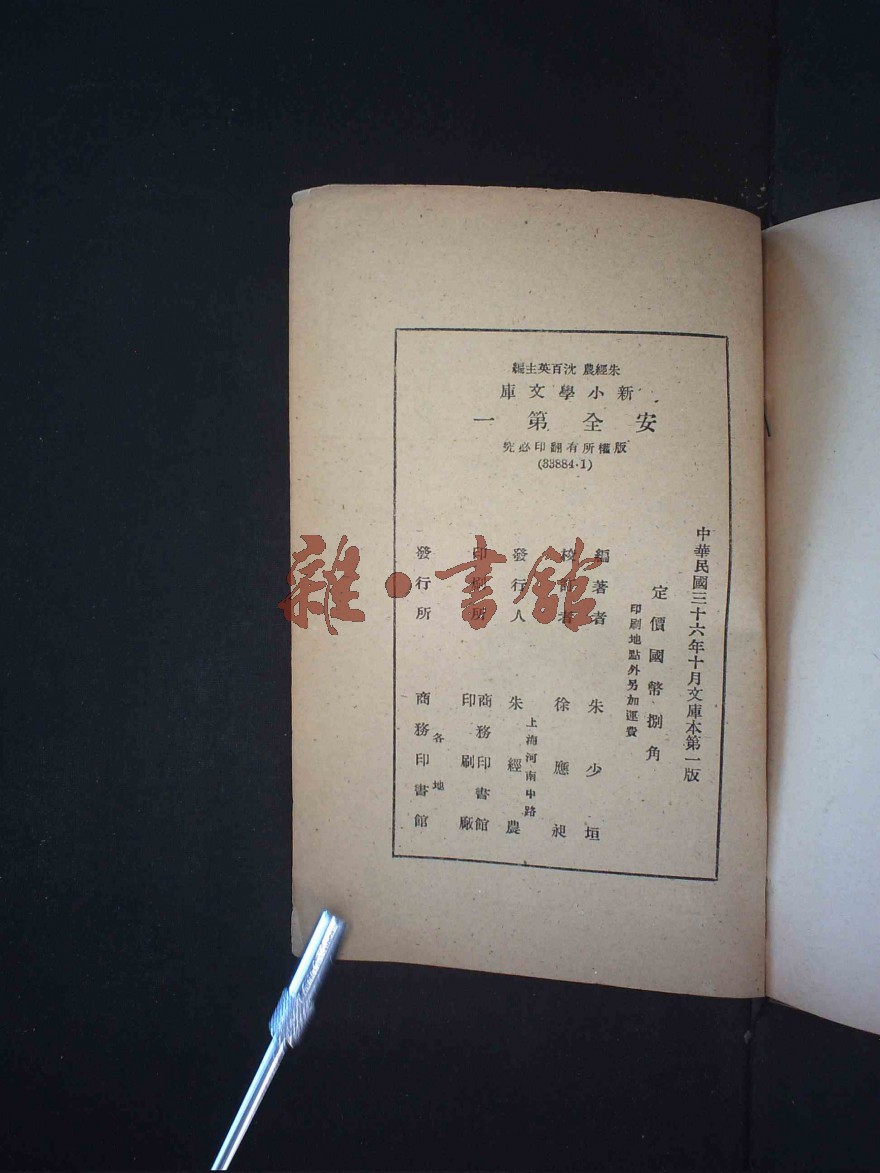 朱經農 沈百英主編
新小學文庫
安全第一
版權所有翻印必究
(33884·1)
中華民國三十六年十月文庫本第一版
定價國幣捌角
印刷地點外另加運費
編著者 朱少垣
校訂者 徐應昶
發行人 朱經農
上海河南中路
印刷所 商務印書館印刷廠
發行所 各地商務印書館
雜·書館